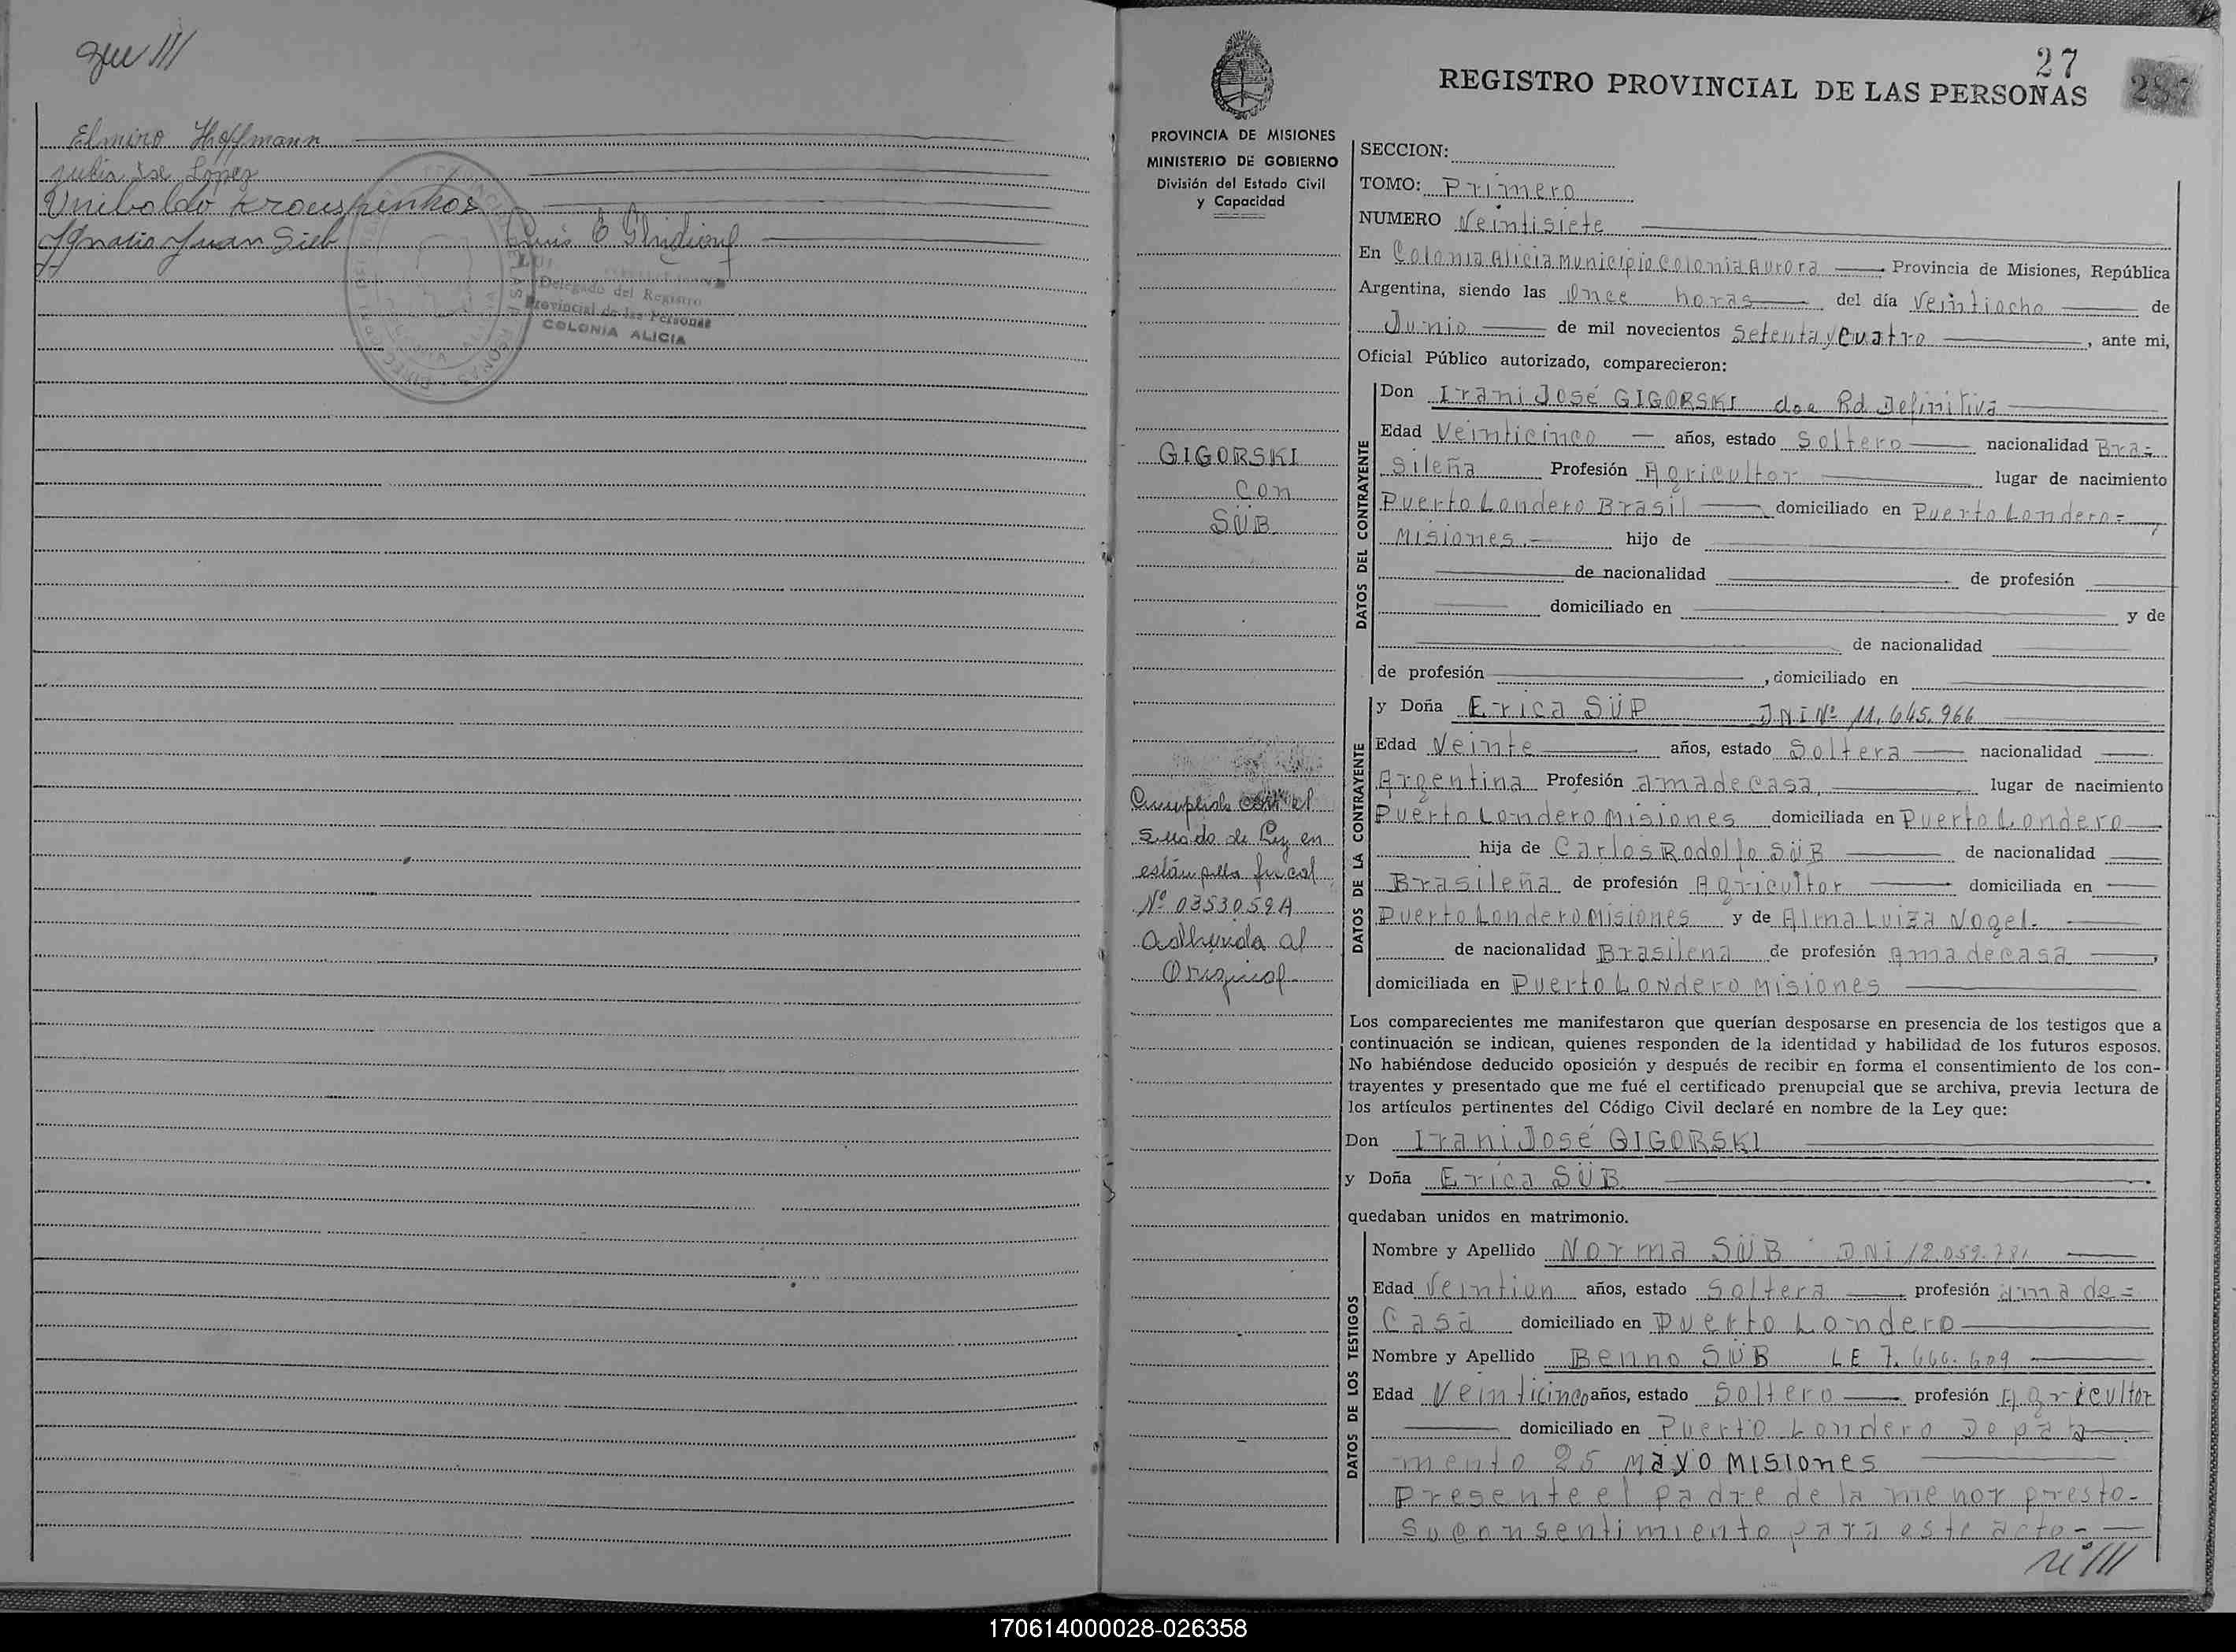 Elmiro Hoffmann
Julia Ise López
Uniboldo
Ignacio Juan Sieb
Luis E
Delegado del Registro
Provincial de las Personas
COLONIA ALICIA
27
287
REGISTRO PROVINCIAL DE LAS PERSONAS
PROVINCIA DE MISIONES
MINISTERIO DE GOBIERNO
División del Estado Civil
y Capacidad
GIGORSKI
con
SÜB
Cumplido con el
Sellado de Ley en
estampilla fiscal
Nº 0353059A
Adherida al
Original
SECCION:
TOMO: Primero
NUMERO Veintisiete
En Colonia Alicia Municipio Colonia Aurora Provincia de Misiones, República
Argentina, siendo las Once horas del día Veintiocho de
Junio de mil novecientos Setenta y Cuatro, ante mi,
Oficial Público autorizado, comparecieron:
DATOS DEL CONTRAYENTE
Don Irani José GIGORSKI doc Rd Definitiva
Edad Veinticinco años, estado Soltero nacionalidad Bra=
sileña Profesión Agricultor lugar de nacimiento
Puerto Londero Brasil domiciliado en Puerto Londero=
Misiones.- hijo de
de nacionalidad de profesión
domiciliado en y de
de nacionalidad
de profesión , domiciliado en
DATOS DE LA CONTRAYENTE
y Doña Erica SÜP DNI Nº 11.645.966
Edad Veinte años, estado Soltera nacionalidad
Argentina Profesión ama de casa, lugar de nacimiento
Puerto Londero Misiones domiciliada en Puerto Londero
hija de Carlos Rodolfo SÜB de nacionalidad
Brasileña de profesión Agricultor domiciliada en
Puerto Londero Misiones y de Alma Luiza Nogel.
de nacionalidad Brasilena de profesión Ama de casa,
domiciliada en Puerto Londero Misiones
Los comparecientes me manifestaron que querían desposarse en presencia de los testigos que a
continuación se indican, quienes responden de la identidad y habilidad de los futuros esposos.
No habiéndose deducido oposición y después de recibir en forma el consentimiento de los con-
trayentes y presentado que me fué el certificado prenupcial que se archiva, previa lectura de
los artículos pertinentes del Código Civil declaré en nombre de la Ley que:
Don Irani José GIGORSKI
y Doña Erica SÜB
quedaban unidos en matrimonio.
DATOS DE LOS TESTIGOS
Nombre y Apellido Norma SÜB DNI 12.059.781
Edad Veintiun años, estado Soltera profesión ama de=
Casa domiciliado en Puerto Londero
Nombre y Apellido Benno SÜB LE 7.646.609
Edad Veinticinco años, estado Soltero profesión Agricultor
domiciliado en Puerto Londero Depata
mento 25 Mayo Misiones
Presente el padre de la menor presto-
Su connsentimiento para este acto-
170614000028-026358